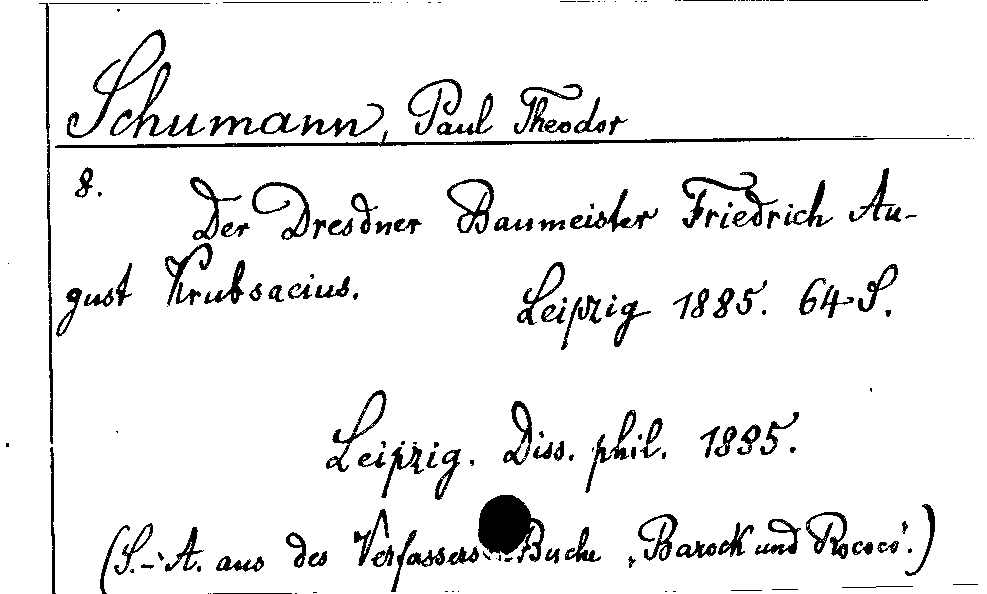 Schumann, Paul Theodor
8. Der Dresdner Baumeister Friedrich Au-
gust Krubsacius.
Leipzig 1885. 64 S.
Leipzig. Diss. phil. 1885.
(S.-A. aus des Verfassers Buche „Barock und Rococo“.)